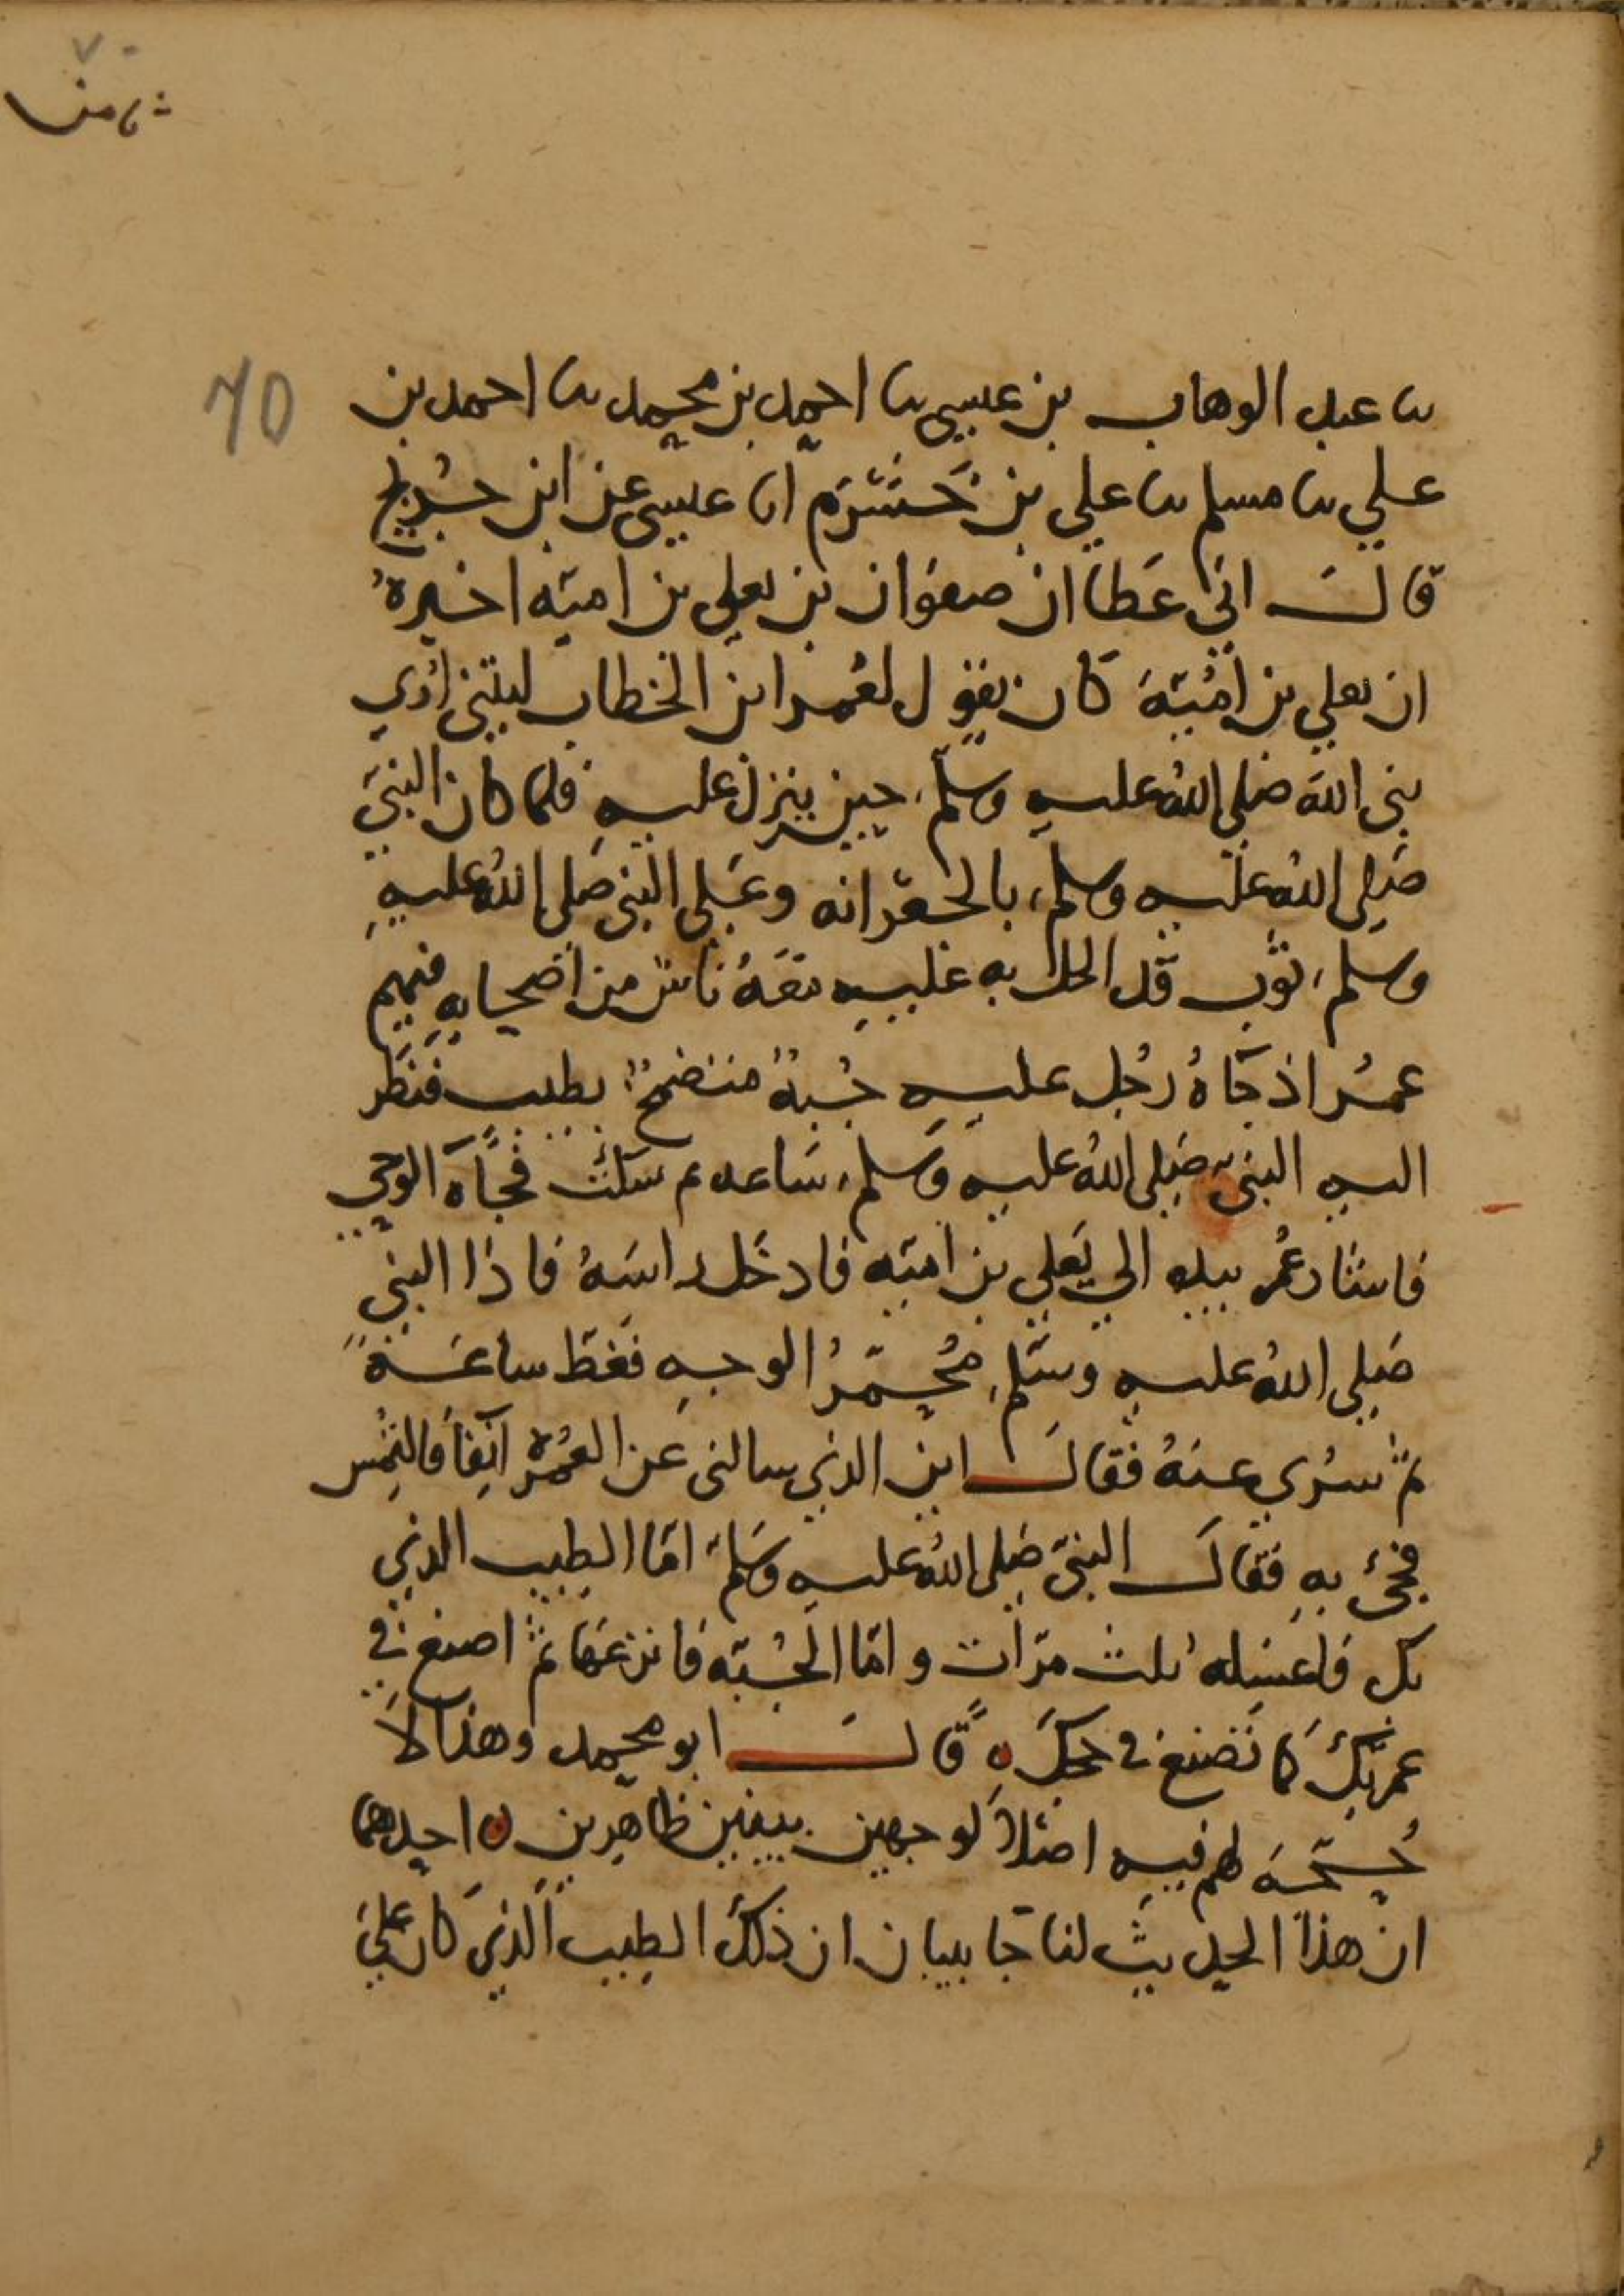 ثامن
70
نا عبد الوهاب بن عيسى نا احمد بن محمد نا احمد بن
علي نا مسلم نا علي بن خشرم انا عيسى عن ابن جريج
قال اني عطا ان صفوان بن يعلى بن اميّه اخبرهُ
ان يعلي بن اميّة كان يقول لعُمر ابن الخطاب ليتني اري
نبي الله صلي اللهُ عليه وسلم حين ينزل عليه فلما كان النبي
صلي اللهُ عليه وسلم بالجعرّانه وعَلى النبي صلى اللهُ عليهِ
وسلم ثوب قد اظل به عليه معَهُ ناس من اصحابِهِ فيهم
عمرُ اذ جَاهُ رجُل عليه جُبةٌ متضمخٌ بطيب فنظَر
اليه النبي صلى اللهُ عليه وسلم ساعه ثم سكت فجاهَ الوحي
فاشار عُمر بيده الي يَعلي بن اميّه فادخَل راسَهُ فاذا النبي
صَلى اللهُ عليه وسَلم مُحمّرُ الوجهِ فغَطّ ساعَةً
ثمّ سُري عنهُ فقالَ اين الذي سالني عن العُمرة آنفاً فالتُمِس
فجئ بهِ فقال النبيّ صَلى اللهُ عليه وسَلم امّا الطيب الذي
بك فاغسله ثلث مرّات وامّا الجُبّه فانزعَها ثمّ اصنع في
عمرتكَ كما تَصنع في حجكَ ۝ قالَ ابو محمد وهذا لا
حُجّة لهم فيه اصلاً لوجهين بينين ظاهرين ۝ احدهما
ان هذا الحديث لنا جا ببيان ان ذلك الطيب الذي كان عَلى